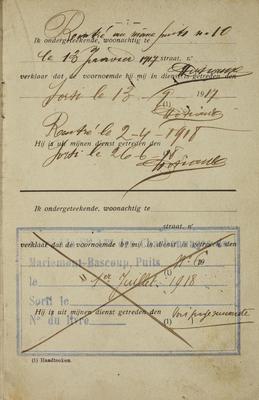 Rentré au mane puits no 10
Ik ondergeteekende, woonachtig te
le 13 Janvier 1917 straat, n°
verklaar dat de voornoemde bij mij in diensten getreden is
Sorti le 13 1917
(1)
Rentré le 2-4-1918
Hij is uit mijnen dienst getreden den
Sorti le 26-6-18
Ik ondergeteekende, woonachtig te
straat, n°
verklaar dat de voornoemde bij mij in dienst is getreden den
Mariemont-Bascoup, Puits N° 6
le 1er Juillet 1918
(1)
Sorti le
Hij is uit mijnen dienst getreden den
N° du livre
(1) Handteeken.